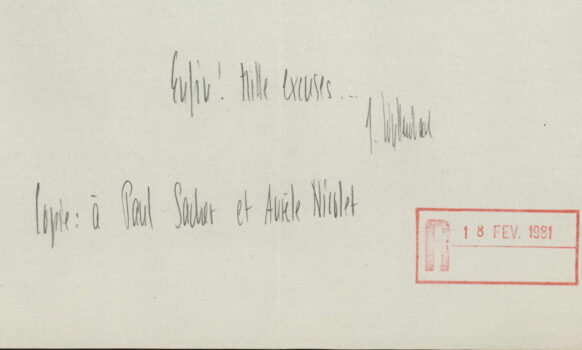 Enfin! mille excuses...
J.
Copie: à Paul Sacher et Aurèle Nicolet
18 FEV. 1981